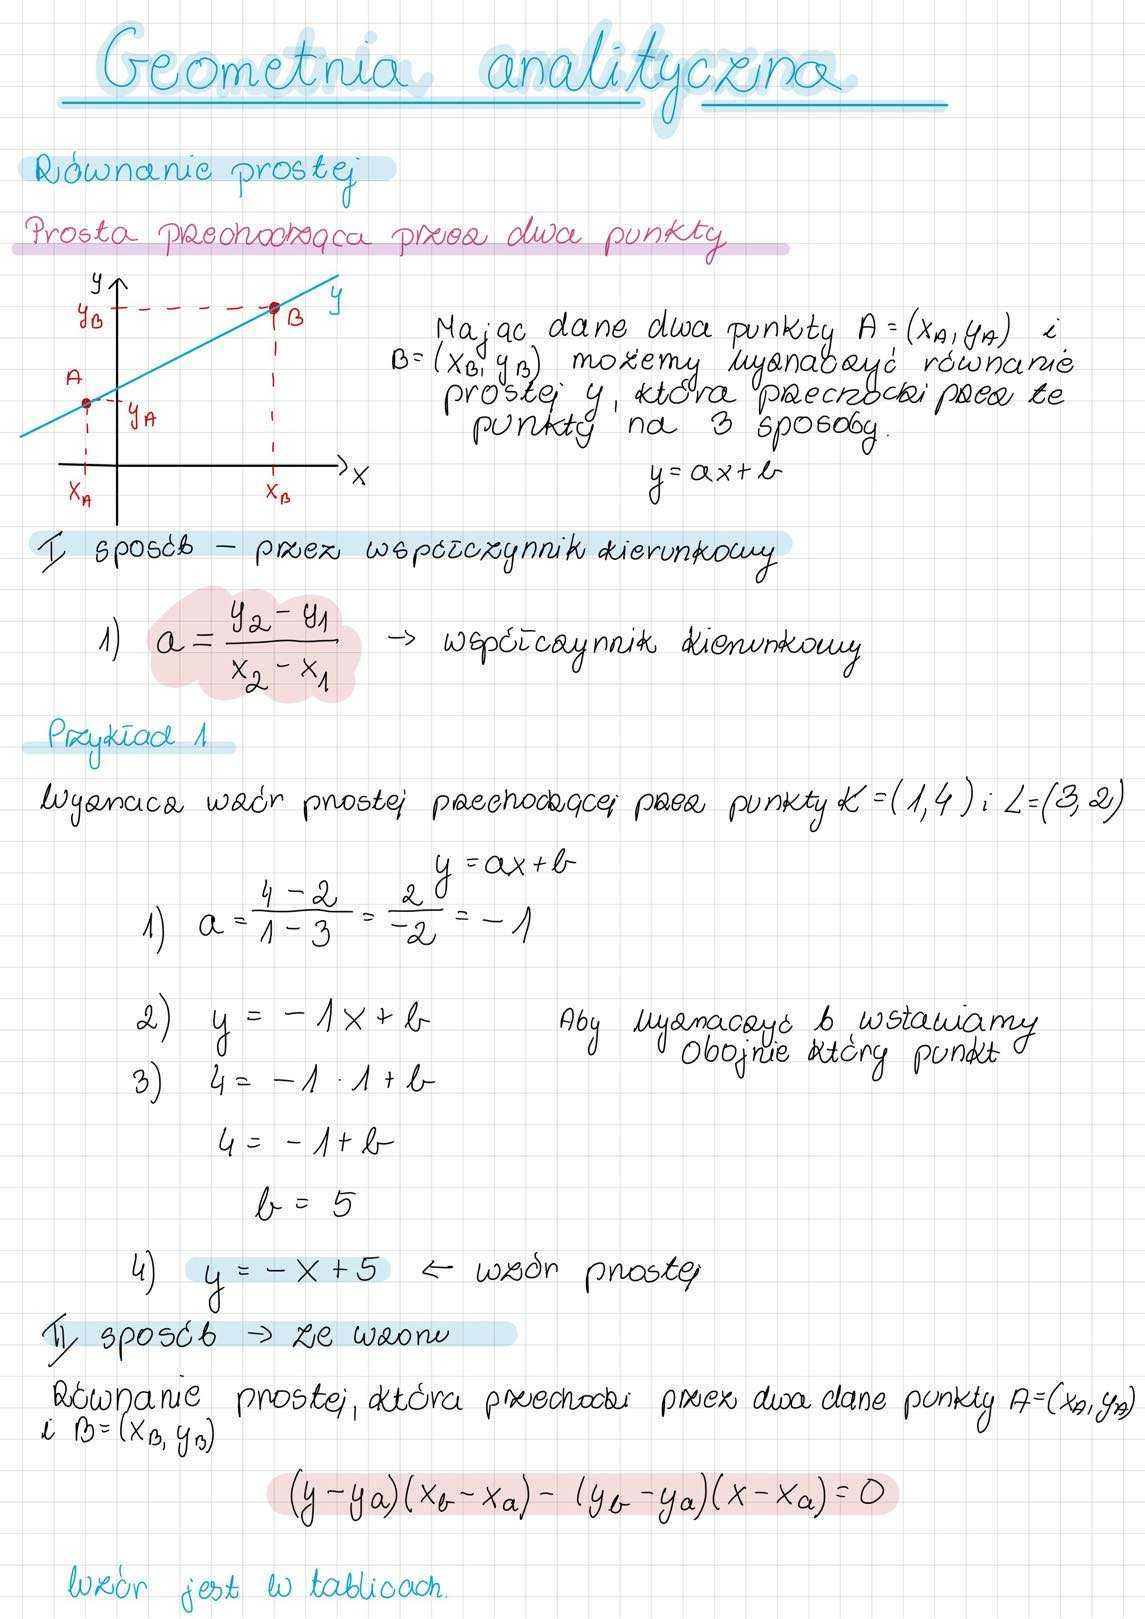 Geometria analityczna
Równanie prostej
Prosta przechodząca przez dwa punkty
y
yB
B
y
A
yA
xA
xB
x
Mając dane dwa punkty A = (xA, yA) i
B = (xB, yB) możemy wyznaczyć równanie
prostej y, która przechodzi przez te
punkty na 3 sposoby.
y = ax + b
I sposób – przez współczynnik kierunkowy
1) a = (y2 - y1)/(x2 - x1) → współczynnik kierunkowy
Przykład 1
Wyznacz wzór prostej przechodzącej przez punkty K = (1,4) i L = (3,2)
y = ax + b
1) a = (4 - 2)/(1 - 3) = 2/-2 = -1
2) y = -1x + b
Aby wyznaczyć b wstawiamy
obojnie który punkt
3) 4 = -1 · 1 + b
4 = -1 + b
b = 5
4) y = -x + 5 ← wzór prostej
II sposób → ze wzoru
Równanie prostej, która przechodzi przez dwa dane punkty A = (xA, yA)
i B = (xB, yB)
(y - ya)(xb - xa) - (yb - ya)(x - xa) = 0
Wzór jest w tablicach.